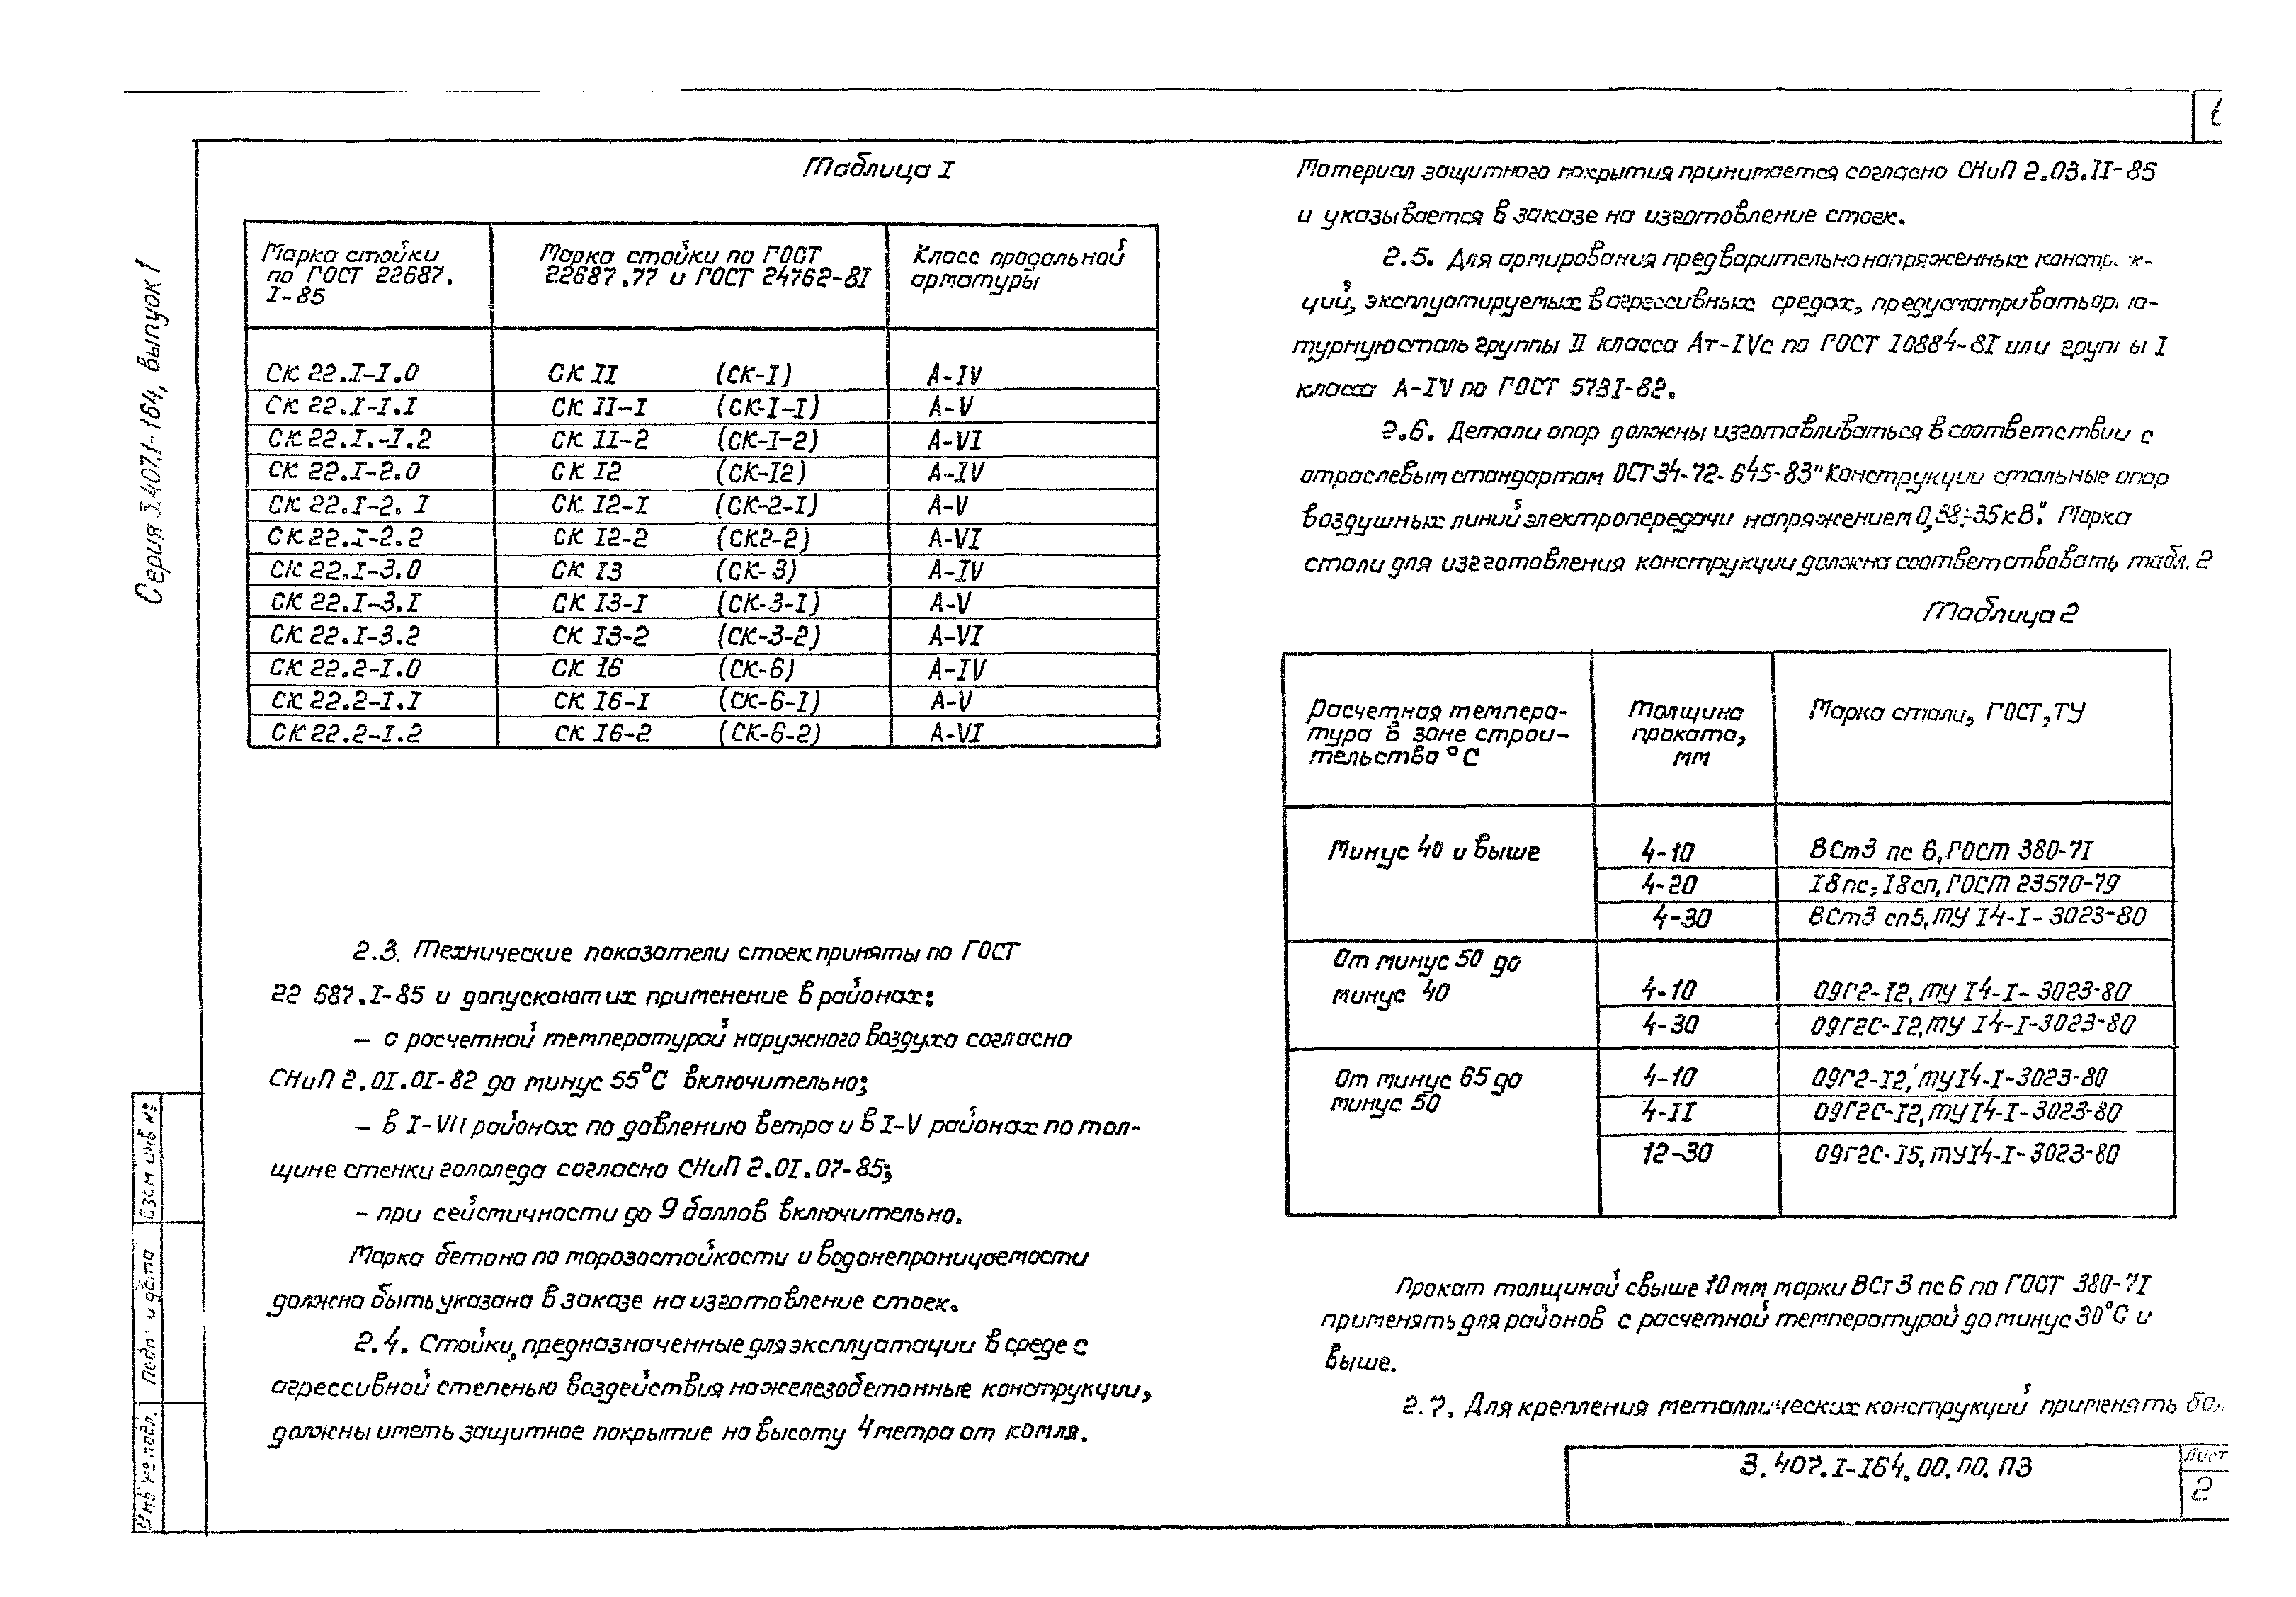 Серия 3.407.1-164, выпуск 1
Таблица I
Марка стойки по ГОСТ 22687. I-85 | Марка стойки по ГОСТ 22687.77 и ГОСТ 24762-8I | Класс продольной арматуры
СК 22.I-I.0 | СК II (СК-I) | А-IV
СК 22.I-I.I | СК II-I (СК-I-I) | А-V
СК 22.I.-I.2 | СК II-2 (СК-I-2) | А-VI
СК 22.I-2.0 | СК I2 (СК-I2) | А-IV
СК 22.I-2. I | СК I2-I (СК-2-I) | А-V
СК 22.I-2.2 | СК I2-2 (СК2-2) | А-VI
СК 22.I-3.0 | СК I3 (СК-3) | А-IV
СК 22.I-3.I | СК I3-I (СК-3-I) | А-V
СК 22.I-3.2 | СК I3-2 (СК-3-2) | А-VI
СК 22.2-I.0 | СК I6 (СК-6) | А-IV
СК 22.2-I.I | СК I6-I (СК-6-I) | А-V
СК 22.2-I.2 | СК I6-2 (СК-6-2) | А-VI
2.3. Технические показатели стоек приняты по ГОСТ
22 687.I-85 и допускают их применение в районах:
– с расчетной температурой наружного воздуха согласно
СНиП 2.0I.0I-82 до минус 55°С включительно;
– в I-VII районах по давлению ветра и в I-V районах по тол-
щине стенки гололеда согласно СНиП 2.0I.07-85;
– при сейсмичности до 9 баллов включительно.
Марка бетона по морозостойкости и водонепроницаемости
должна быть указана в заказе на изготовление стоек.
2.4. Стойки, предназначенные для эксплуатации в среде с
агрессивной степенью воздействия на железобетонные конструкции,
должны иметь защитное покрытие на высоту 4 метра от комля.
Материал защитного покрытия принимается согласно СНиП 2.03.II-85
и указывается в заказе на изготовление стоек.
2.5. Для армирования предварительно напряженных констр к-
ций, эксплуатируемых в агрессивных средах, предусматривать ар а-
турную сталь группы II класса Ат-IVс по ГОСТ I0884-8I или груп ы I
класса А-IV по ГОСТ 578I-82.
2.6. Детали опор должны изготавливаться в соответствии с
отраслевым стандартом ОСТ 34-72-645-83 "Конструкции стальные опор
воздушных линий электропередачи напряжением 0,38÷35 кВ". Марка
стали для изготовления конструкции должна соответствовать табл. 2
Таблица 2
Расчетная темпера- тура в зоне строи- тельства °С | Толщина проката, мм | Марка стали, ГОСТ, ТУ
Минус 40 и выше | 4-10 | ВСт3 пс 6, ГОСТ 380-7I
4-20 | I8пс, I8сп, ГОСТ 23570-79
4-30 | ВСт3 сп5, ТУ I4-I-3023-80
От минус 50 до минус 40 | 4-10 | 09Г2-I2, ТУ I4-I-3023-80
4-30 | 09Г2С-I2, ТУ I4-I-3023-80
От минус 65 до минус 50 | 4-10 | 09Г2-I2, ТУ I4-I-3023-80
4-II | 09Г2С-I2, ТУ I4-I-3023-80
12-30 | 09Г2С-I5, ТУ I4-I-3023-80
Прокат толщиной свыше 10 мм марки ВСт 3 пс 6 по ГОСТ 380-7I
применять для районов с расчетной температурой до минус 30°С и
выше.
2.7. Для крепления металлических конструкций применять
Взам инв №
Подп. и дата
Инв № подл.
3.407.I-I64.00.00.ПЗ
Лист
2